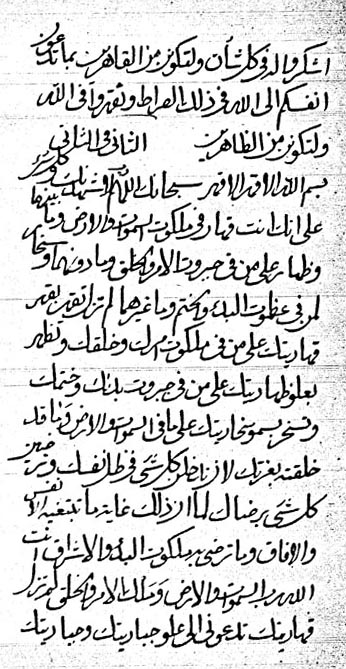 اشكروا له في كل شأن ولتكونن من القاهرين بما تدعون
انفسكم الى الله في ذلك الصراط وتقهروا في الله
ولتكونن من الظاهرين الثاني في الثاني
بسم الله الاقهر الاقهر سبحانك اللهم لاشهدنك وكل شيء
على انك انت قهار في ملكوت السموات والارض وما بينهما
وظهار على من في جبروت الامر والخلق وما دونهما
لمن في عظموت البدء والختم وما غيرهما لم تزل تقهرن بقهر
قهاريتك على من في ملكوت امرك وخلقك وتظهر
بعلو ظهاريتك على من في جبروت بدئك وختمك
وتسخر بسمو سخاريتك على ما في السموات والارض وما قد
خلقته بعزتك لازناطن كل شيء في ظل نفسك
كل شيء برضاك لما ان ذلك غاية ما تبتغيه الانفس
والافاق وما ترضى به ملكوت البدء والاشراق انت
الله رب السموات والارض وملك الامر والخلق لم تزل
قهاريتك تدعوني الى علو جباريتك وجباريتك